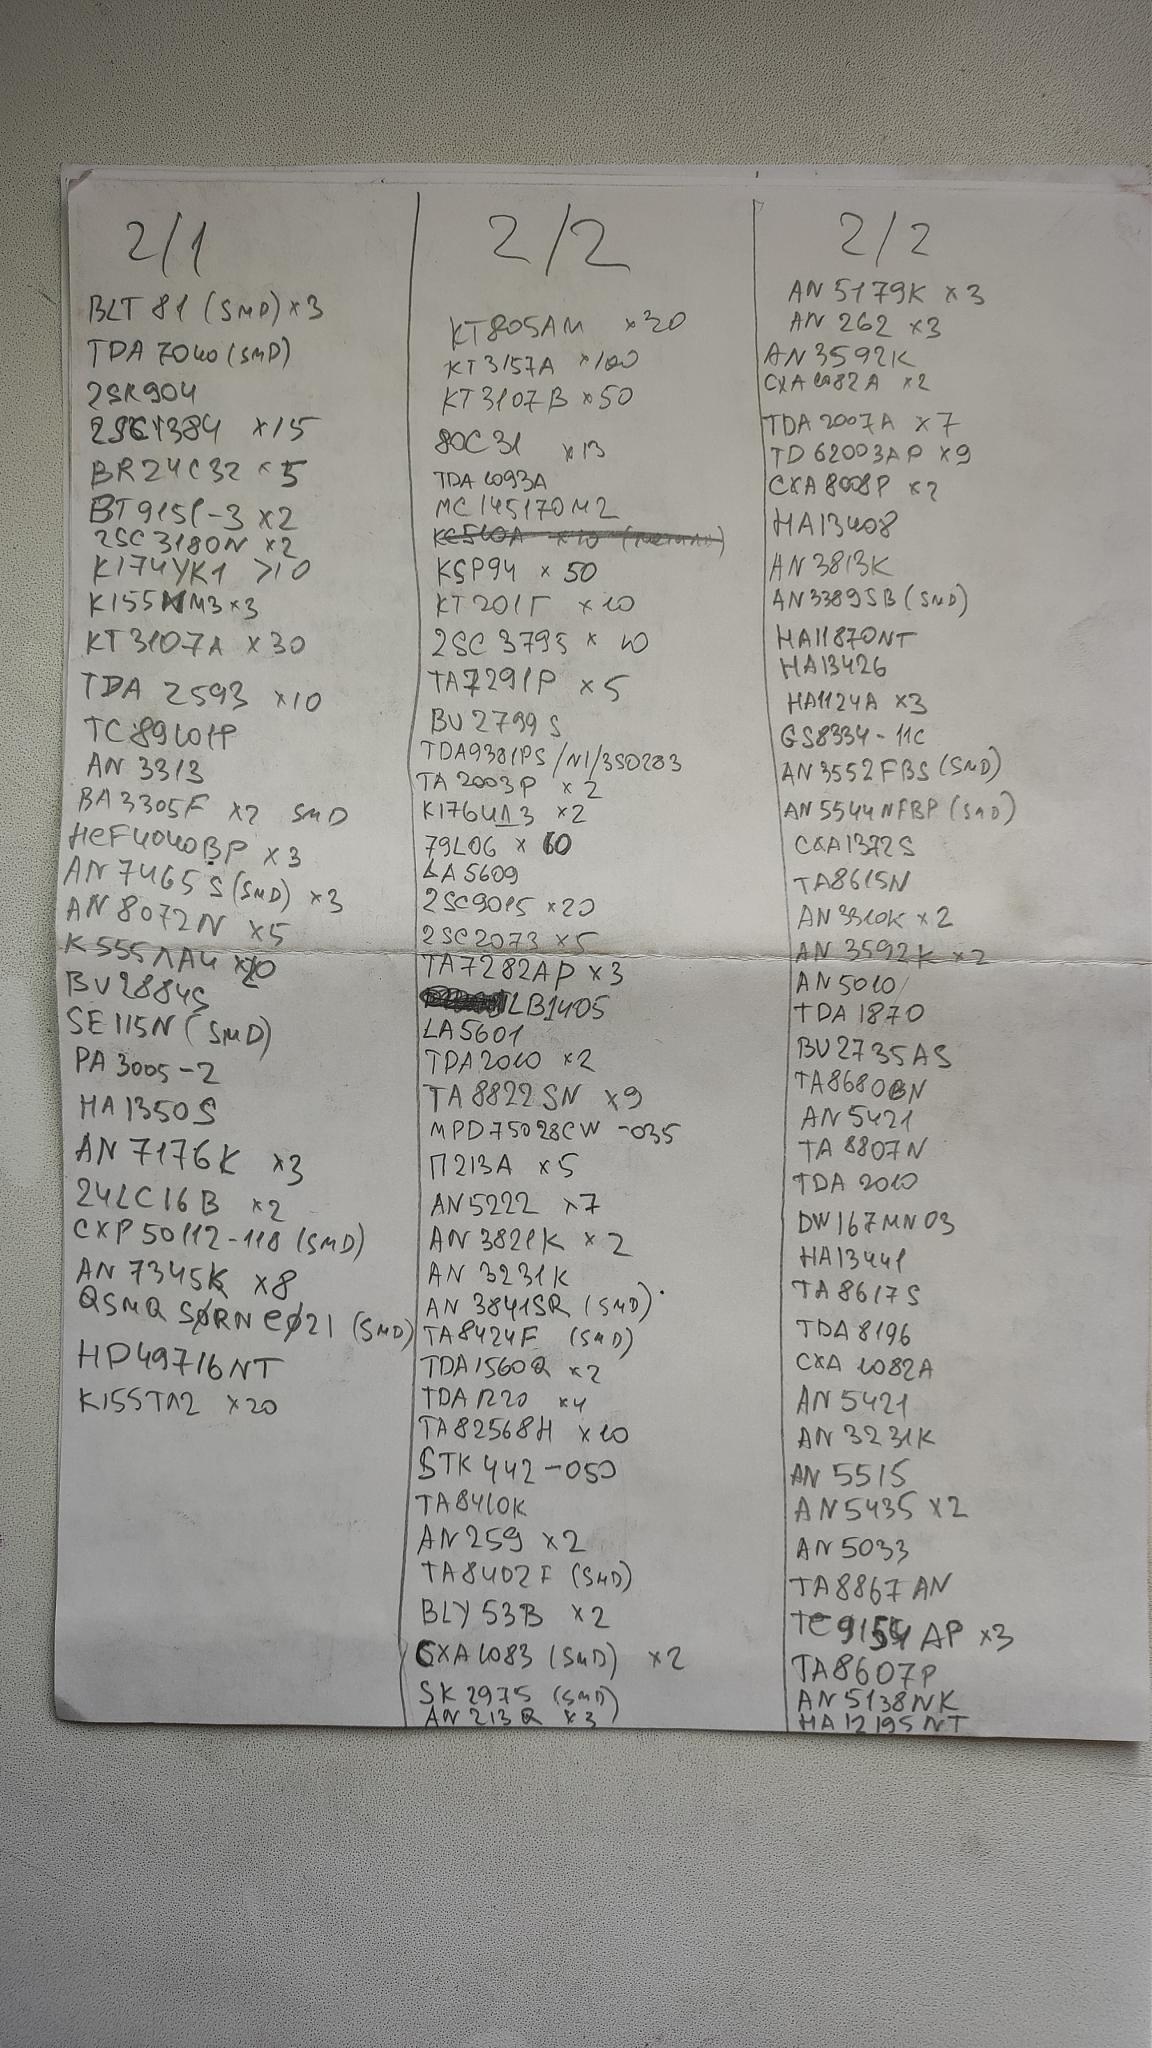 2/1
BLT 81 (SMD) x3
TDA 7040 (SMD)
2SK904
2SC1384 x15
BR24C32 x5
BT9151-3 x2
2SC3180N x2
K174УК1 >10
K155ИМ3 x3
KT3107A x30
TDA 2593 x10
TC89101P
AN 3313
BA3305F x2 SMD
HEF4040BP x3
AN 7465 S (SMD) x3
AN 8072N x5
K555ЛА4 x20
BU2884S
SE115N (SMD)
PA 3005-2
HA1350S
AN 7176K x3
24LC16B x2
CXP 50112-118 (SMD)
AN 7345K x8
QSMQ SØRN CØ21 (SMD)
HD49716NT
K155ТЛ2 x20
2/2
KT805AM x20
KT3157A x100
KT3107B x50
80C31 x13
TDA1093A
MC145170M2
KSP94 x 50
KT201Г x10
2SC 3795 x 10
TA7291P x5
BU2799S
TDA9381PS/N1/3S0283
TA 2003P x2
K176ИД3 x2
79L06 x 60
LA5609
2SC9015 x20
2SC2073 x5
TA7282AP x3
LB1405
LA5601
TDA2010 x2
TA 8822SN x9
MPD75028CW -035
П213A x5
AN5222 x7
AN 3821K x2
AN 3231K
AN 3841SR (SMD)
TA8424F (SMD)
TDA1560Q x2
TDA1220 x4
TA82568H x10
STK 442-050
TA8410K
AN 259 x2
TA8402F (SMD)
BLY 53B x2
CXA1083 (SMD) x2
SK 2975 (SMD)
AN 213Q x3
2/2
AN 5179K x3
AN 262 x3
AN3592K
CXA1082A x2
TDA 2007A x7
TD62003AP x9
CXA8008P x2
HA13408
AN3813K
AN3389SB (SMD)
HA11870NT
HA13426
HA1124A x3
GS8334-11C
AN3552FBS (SMD)
AN5544NFBP (SMD)
CXA1372S
TA8615N
AN3310K x2
AN 3592K x2
AN5010
TDA 1870
BU2735AS
TA8680BN
AN5421
TA 8807N
TDA 2010
DW167MN03
HA13441
TA8617S
TDA8196
CXA 1082A
AN 5421
AN 3231K
AN 5515
AN5435 x2
AN5033
TA8867AN
TC9154AP x3
TA8607P
AN5138NK
HA12195NT